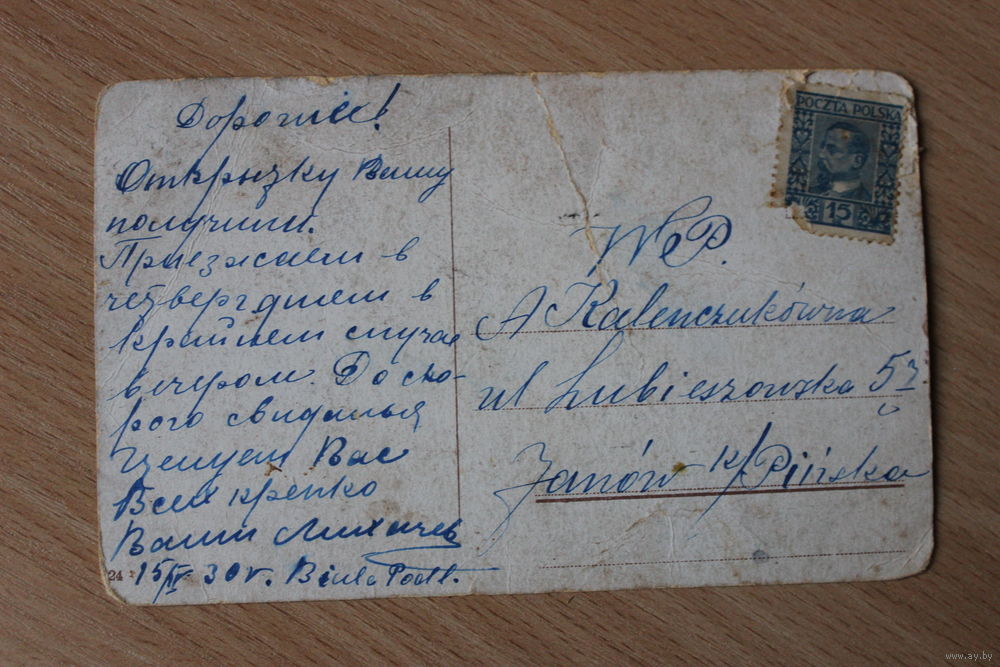 Дорогие!
Открытку Вашу
получили.
Приезжаем в
четверг днем в
крайнем случае
вечером. До ско-
рого свиданья
Целуем Вас
Всех крепко
Ваши Лихачев
24
15/IV 30 г. Biała Podl.
POCZTA POLSKA
15
W.P.
A Kalenczukówna
ul Lubieszowska
Janów k/Pińska
www.ay.by